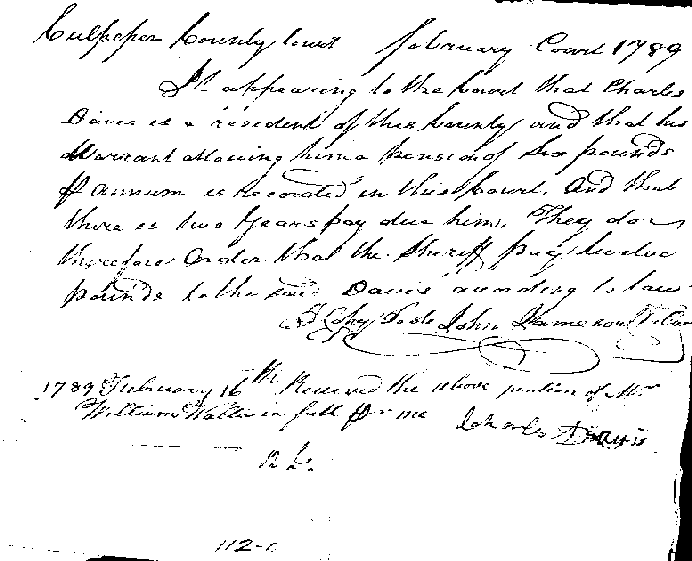 Culpeper County Court February Court 1789
It appearing to the Court that Charles
Davis is a resident of this County and that his
Warrant allowing him a Pension of Six pounds
P annum is Recorded in this Court. And that
there is two Years pay due him. They do
therefore Order that the Sheriff pay twelve
pounds to the said Davis according to law
A Copy Teste John Jameson Cl Cur
1789 February 16th Received the above pention of Mr
William Wallis in full Pr me Charles Davis
112-c